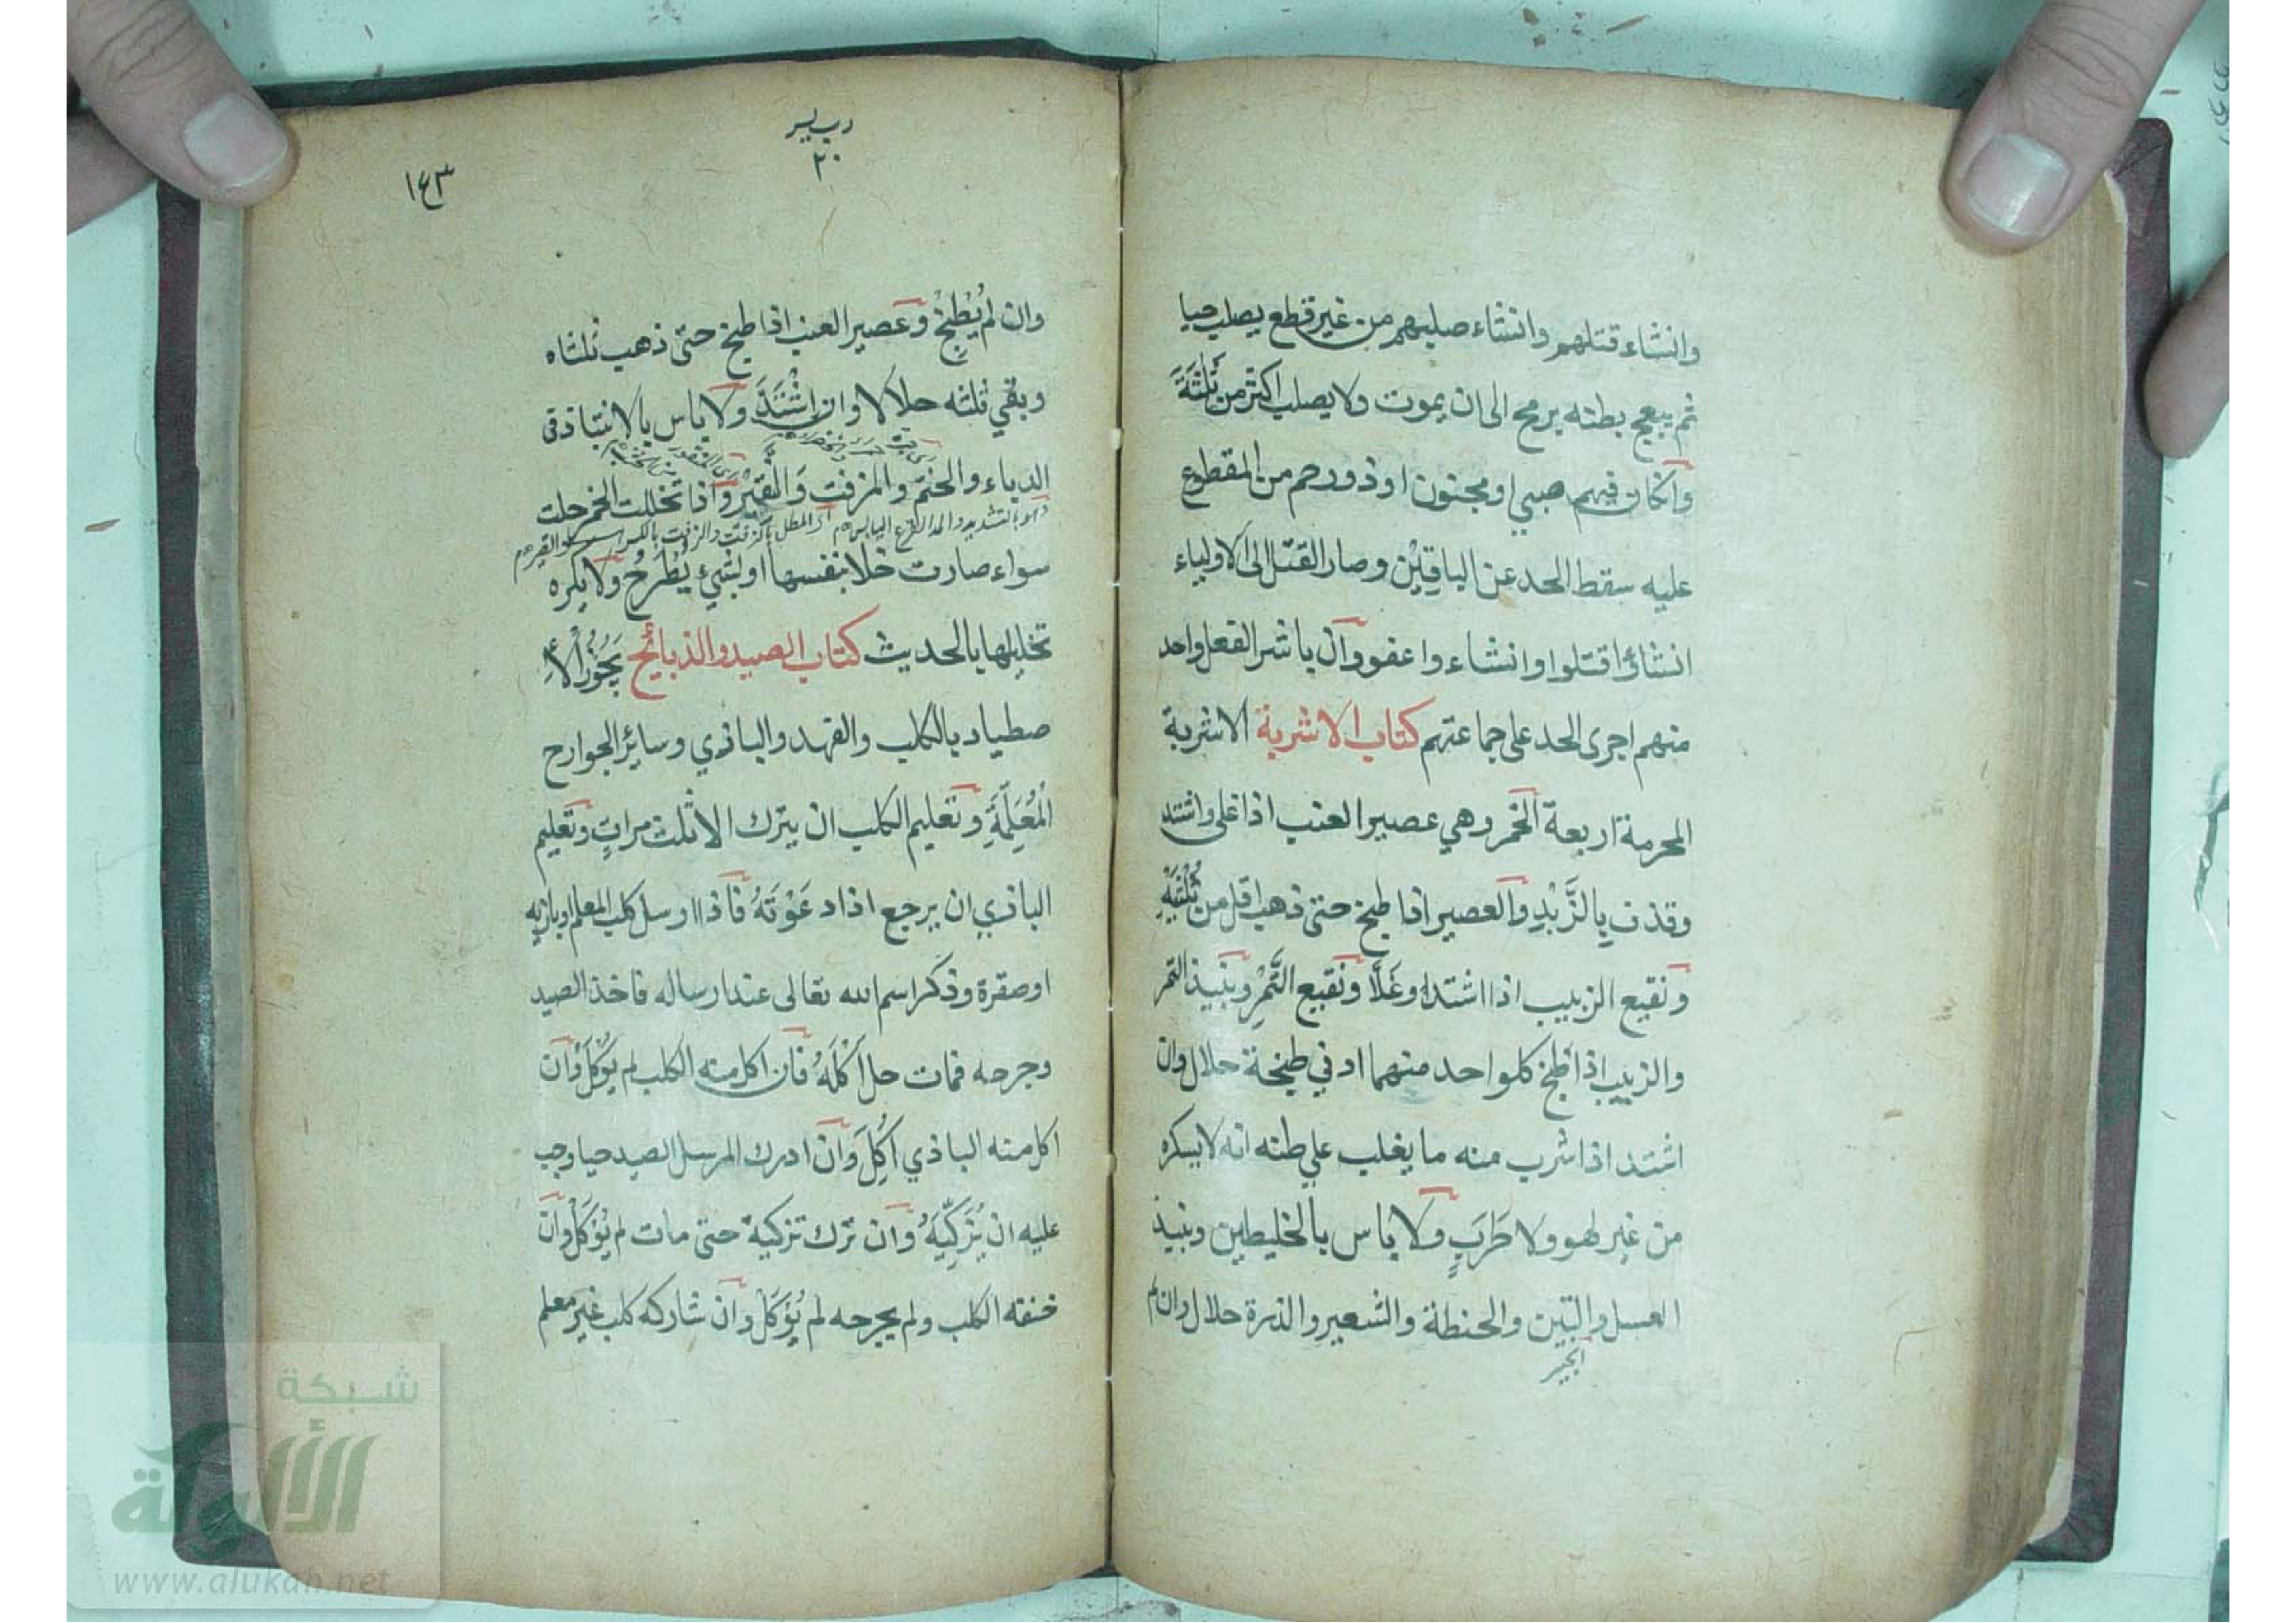 وانشاء قتلهم وانشاء صلبهم من غير قطع يصلب حيا
ثم يبعج بطنه برمح الى ان يموت ولا يصلب اكثر من ثلثة
وانكان فيهم صبي او مجنون او ذو رحم من المقطوع
عليه سقط الحد عن الباقين وصار القتل الى الاولياء
انشاؤا قتلوا وانشاء واعفو وان باشر الفعل واحد
منهم اجرى الحد على جماعتهم كتاب الاشربة الاشربة
المحرمة اربعة الخمر وهي عصير العنب اذا غلى واشتد
وقذف بِالزَّبْدِ والعصير اذا طبخ حتى ذهب اقل من ثُلُثَيْهِ
ونقيع الزبيب اذا اشتد او غَلَا ونقيع التَّمْرِ ونبيذ التمر
والزبيب اذا طبخ كلواحد منهما ادني طبخة حلال وان
اشتد اذا شرب منه ما يغلب علي طنه انه لا يسكره
من غير لهو ولا طَرَبٍ ولا باس بالخليطين ونبيذ
العسل والتين والحنطة والشعير والذرة حلال وان لم
انجير
رب يسر
٢٠
١٤٣
وان لم يُطْبَخْ وعصير العنب اذا طبخ حتى ذهب ثلثاه
وبقي ثلثه حلالا وان اِشْتَدَّ ولا باس بالانتباذ في
الدباء والحنتم والمزفت والنَّقِيْرِ واذا تخللت الخمر حلت
سواء صارت خلا بنفسها او بشيء يُطْرَحُ ولا يكره
تخليلها بالحديث كتاب الصيد والذبائح يَجُوْزُ الْاِ
صطياد بالكلب والفهد والبازي وسائر الجوارح
الْمُعَلَّمَةِ وتعليم الكلب ان يترك الا ثلث مراتٍ وتعليم
البازي ان يرجع اذا دَعَوْتَهُ فاذا ارسل كلب المعلم او بازيه
او صقرة وذكر اسم الله تعالى عند ارساله فاخذ الصيد
وجرحه فمات حل اَكْلَهُ فان اكل منه الكلب لم يُؤْكَلْ وان
اكل منه البازي اُكِلَ وان ادرك المرسل الصيد حيا وجب
عليه ان يُزَكِّيَهُ وان ترك تزكية حتى مات لم يُؤْكَلْ وان
خنقه الكلب ولم يجرحه لم يُؤْكَلْ وان شاركه كلب غير معلم
شبكة
الألوكة
www.alukah.net